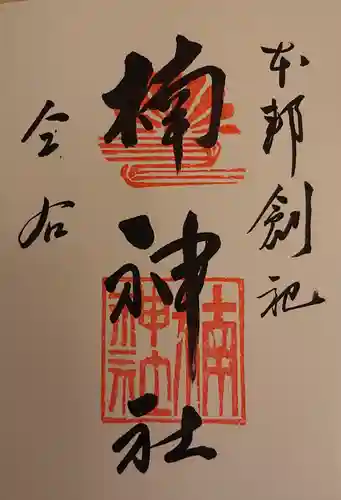 本邦創祀
楠神社
会谷
楠神社